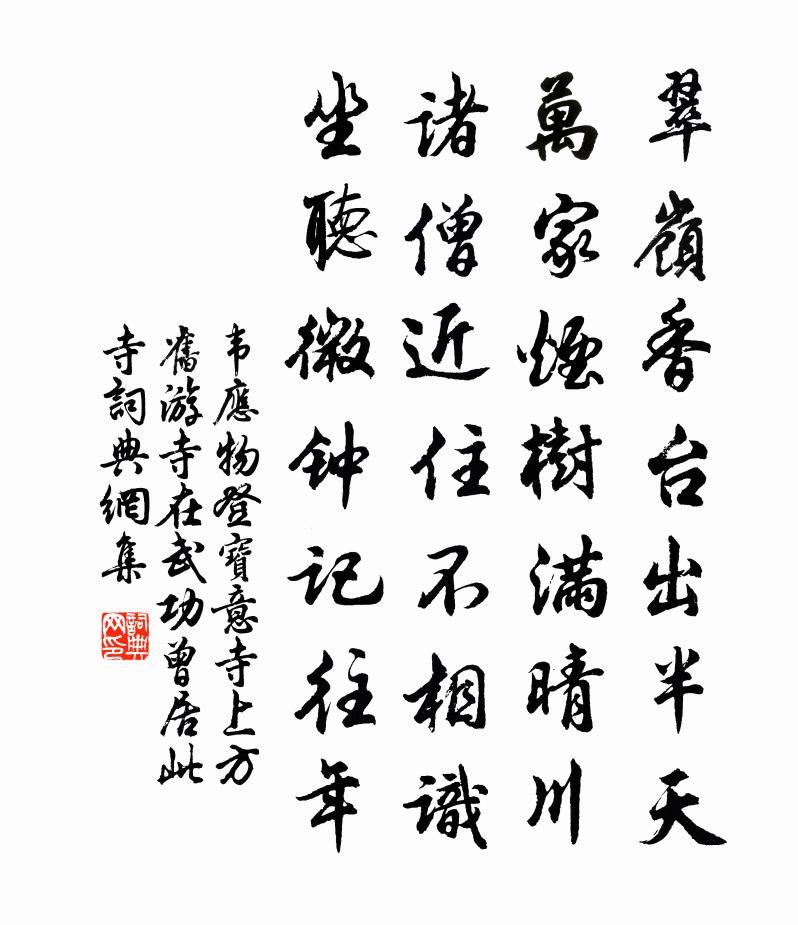 翠嶺香台出半天
萬家煙樹滿晴川
諸僧近住不相識
坐聽微钟记往年
韦應物登寶意寺上方
舊游寺在武功曾居此
寺詞典網集
詞典网印